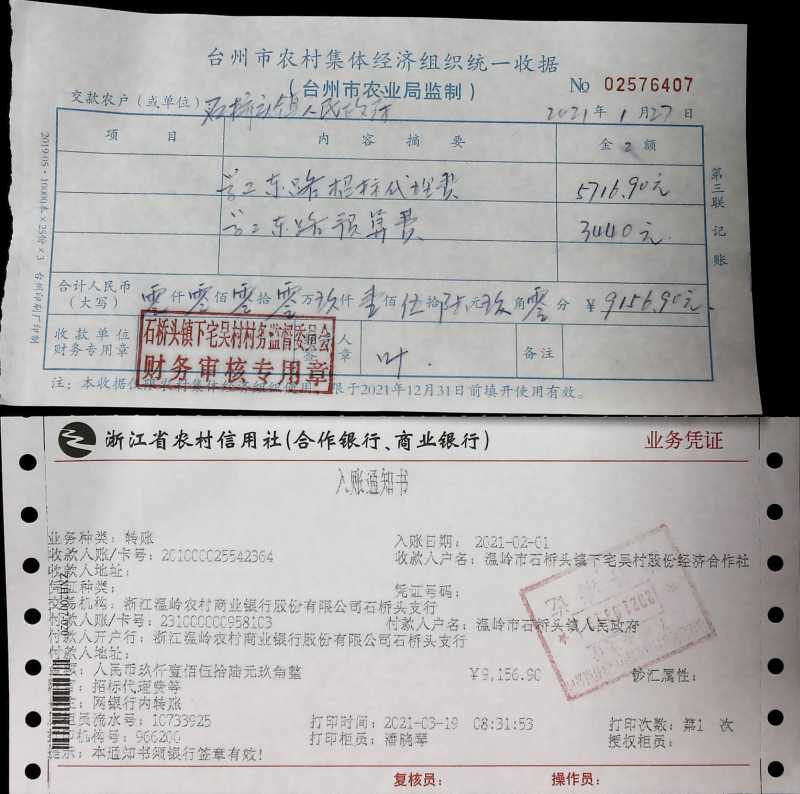 台州市农村集体经济组织统一收据
(台州市农业局监制)
No 02576407
交款农户(或单位) 石桥头镇人民政府 2021年1月27日
项目 内容摘要 金额
东路招标代理费 5716.90元
东路预算费 3440元
合计人民币(大写) 零仟零佰零拾零万玖仟壹佰伍拾陆元玖角零分 ¥9156.90元
收款单位财务专用章
石桥头镇下宅吴村村务监督委员会
财务审核专用章
人章 叶
备注
注:本收据仅限农村集体经济组织使用,限于2021年12月31日前填开使用有效。
第三联 记账
2019.05·10000本×25份×3 台州印刷厂印制
浙江省农村信用社(合作银行、商业银行) 业务凭证
入账通知书
业务种类: 转账 入账日期: 2021-02-01
收款人账/卡号: 201000025542364 收款人户名: 温岭市石桥头镇下宅吴村股份经济合作社
收款人地址:
凭证种类: 凭证号码:
交易机构: 浙江温岭农村商业银行股份有限公司石桥头支行
付款人账/卡号: 231000000958103 付款人户名: 温岭市石桥头镇人民政府
付款人开户行: 浙江温岭农村商业银行股份有限公司石桥头支行
付款人地址:
人民币玖仟壹佰伍拾陆元玖角整 ¥9,156.90 钞汇属性:
招标代理费等
网银行内转账
柜员流水号: 10733925 打印时间: 2021-03-19 08:31:53 打印次数: 第1 次
机构号: 966200 打印柜员: 潘晓琴 授权柜员:
提示: 本通知书须银行签章有效!
复核员: 操作员: